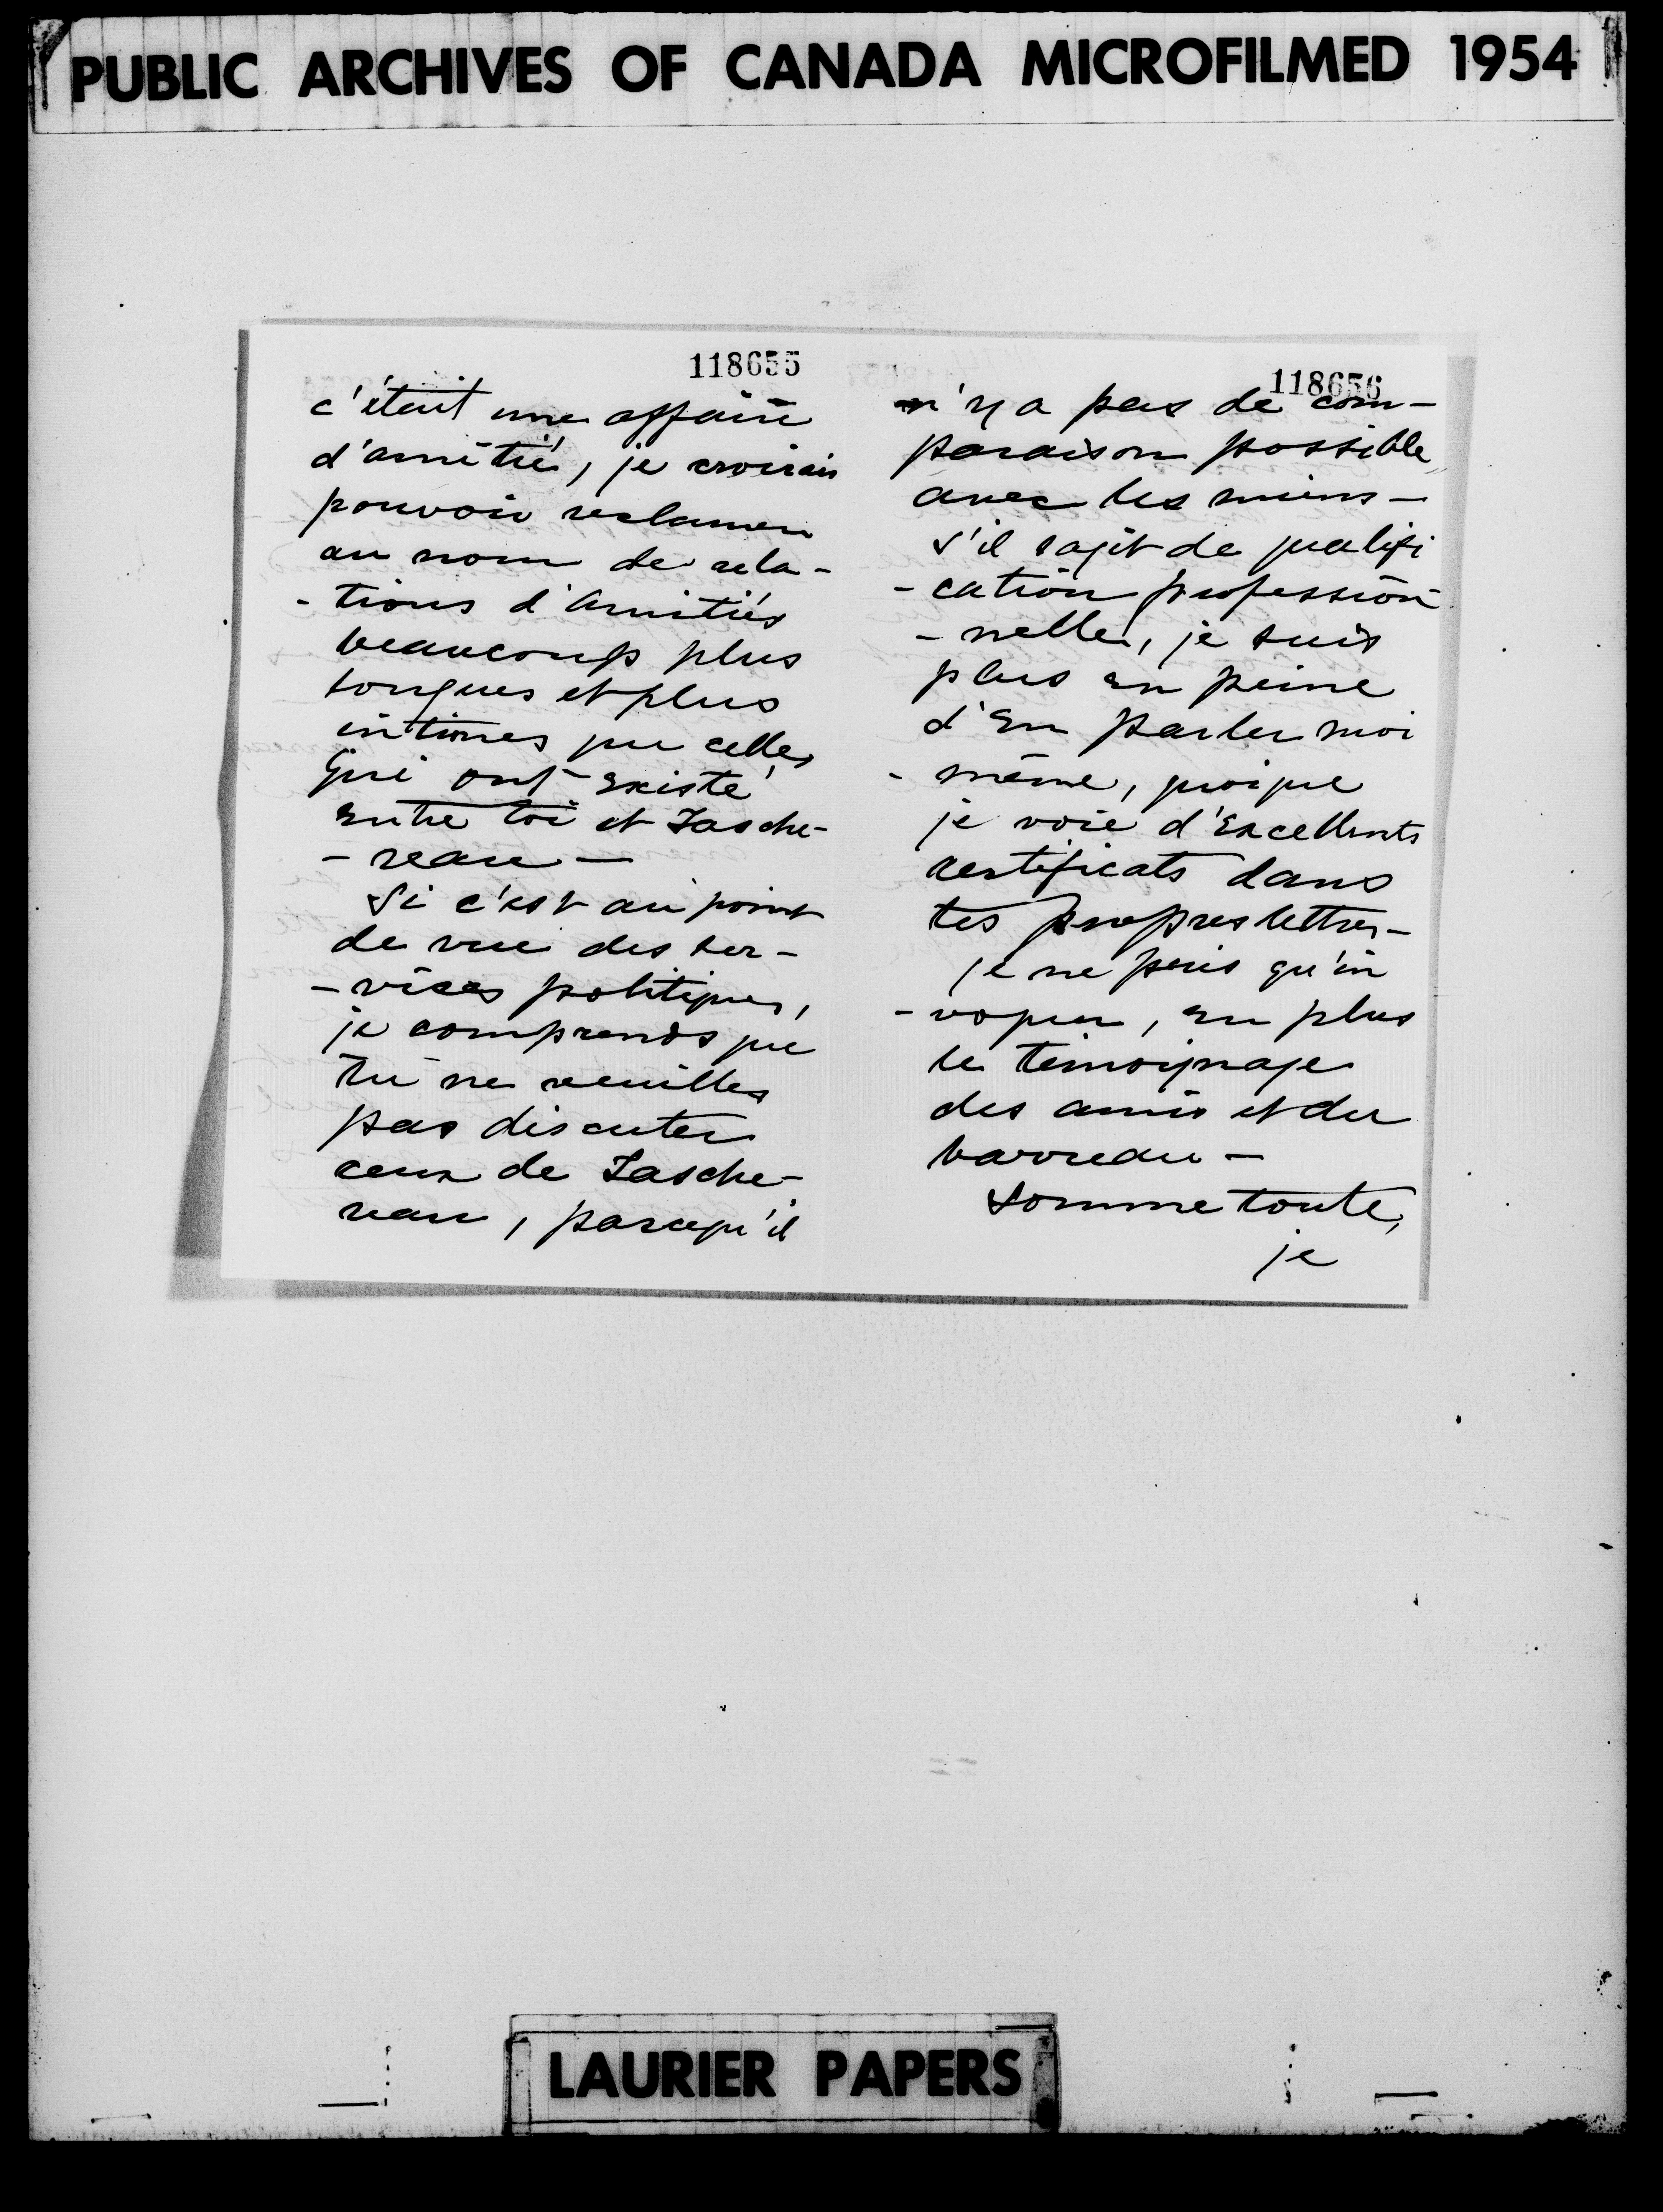 PUBLIC ARCHIVES OF CANADA MICROFILMED 1954
118655
c'était une affaire
d'amitié, je croirais
pouvoir reclamer
au nom de rela-
-tions d'amitiés
beaucoup plus
longues et plus
intimes que celles
qui ont existé
entre toi et Tasche-
-reau -
Si c'est au point
de vue des ser-
-vices politiques,
je comprends que
tu ne veuilles
pas discuter
ceux de Tasche-
reau, parcequ'il
118656
n'y a pas de com-
paraison possible
avec les miens -
S'il sagit de qualifi
-cation profession
-nelle, je suis
plus en peine
d'en parler moi
-même, quoique
je voie d'excellents
certificats dans
tes propres lettres -
je ne puis qu'in
-voquer, en plus
le témoignage
des amis et du
barreau -
Somme toute,
je
LAURIER PAPERS